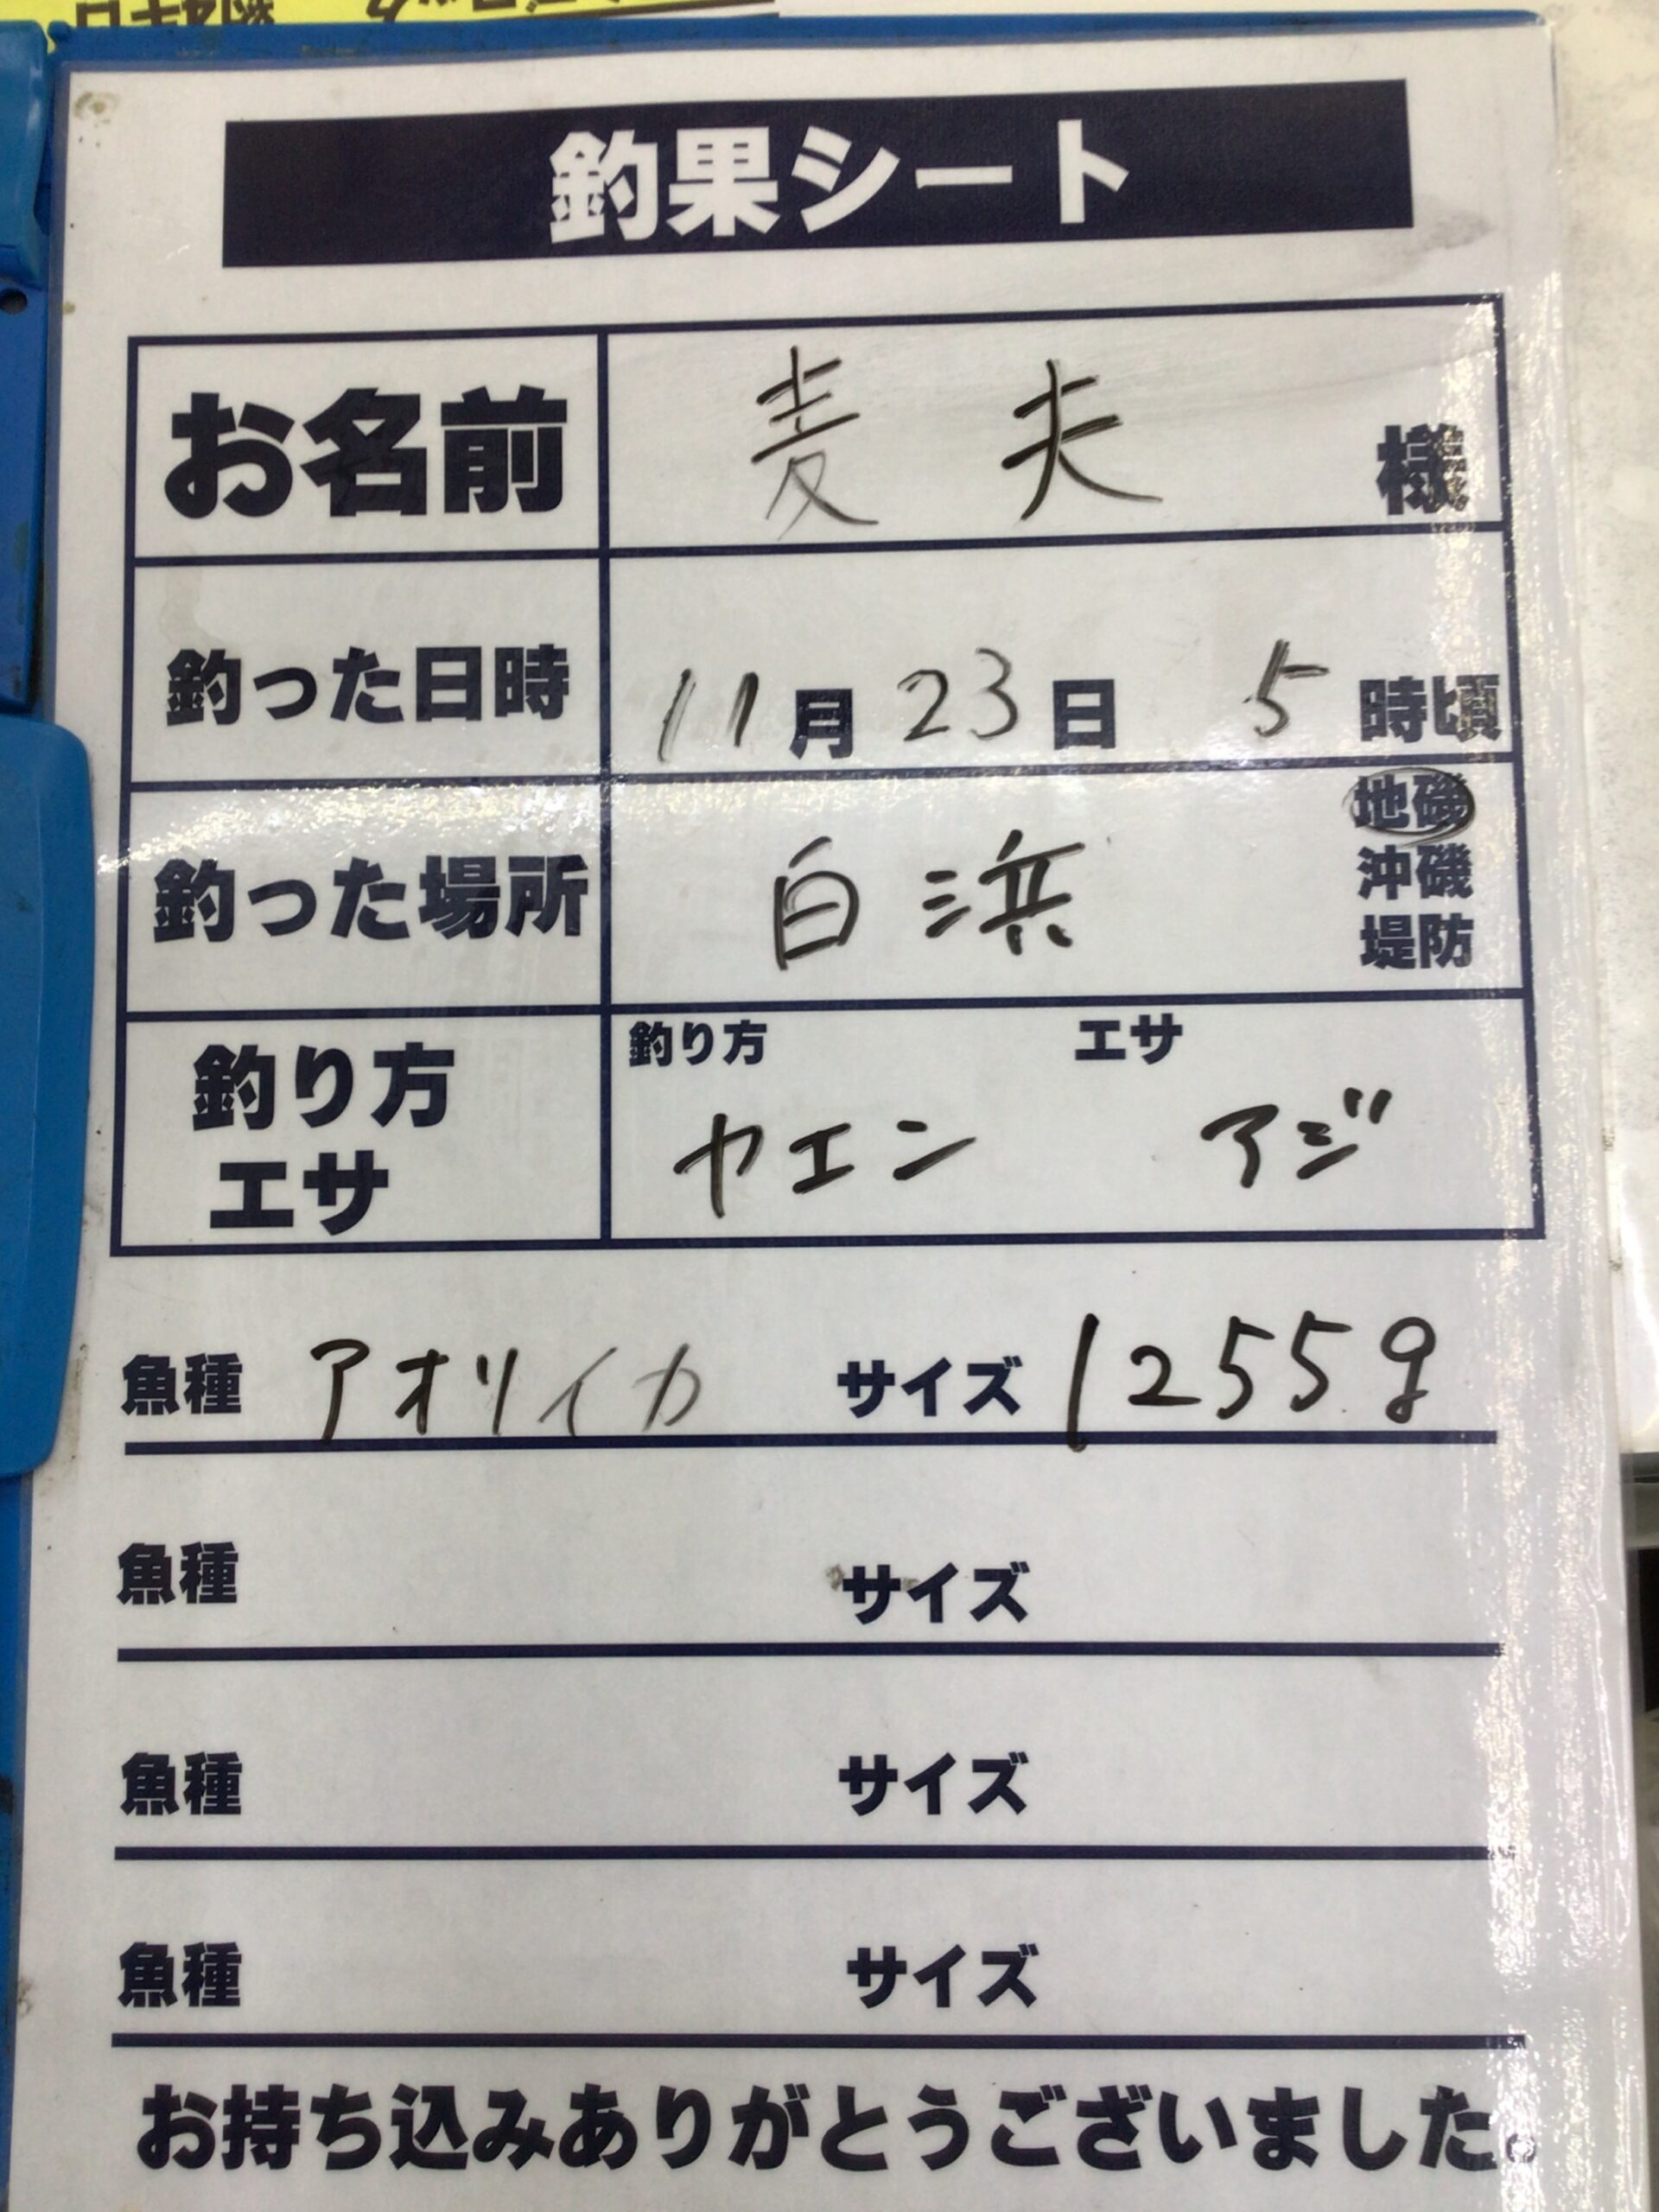 釣果シート
お名前 麦夫 様
釣った日時 11月23日 5時頃
釣った場所 白浜 地磯 沖磯 堤防
釣り方 エサ
釣り方 エサ
ヤエン アジ
魚種 アオリイカ サイズ 1255g
魚種 サイズ
魚種 サイズ
魚種 サイズ
お持ち込みありがとうございました。